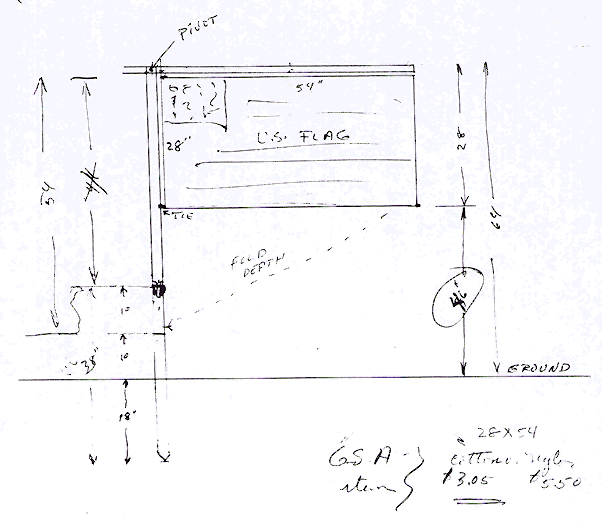 PIVOT
54"
U.S. FLAG
28"
28
54
64
TIE
FOLD
DEPTH
10
10
18"
GROUND
28 X 54
GSA
item
cotton nylon
$3.05 $5.50